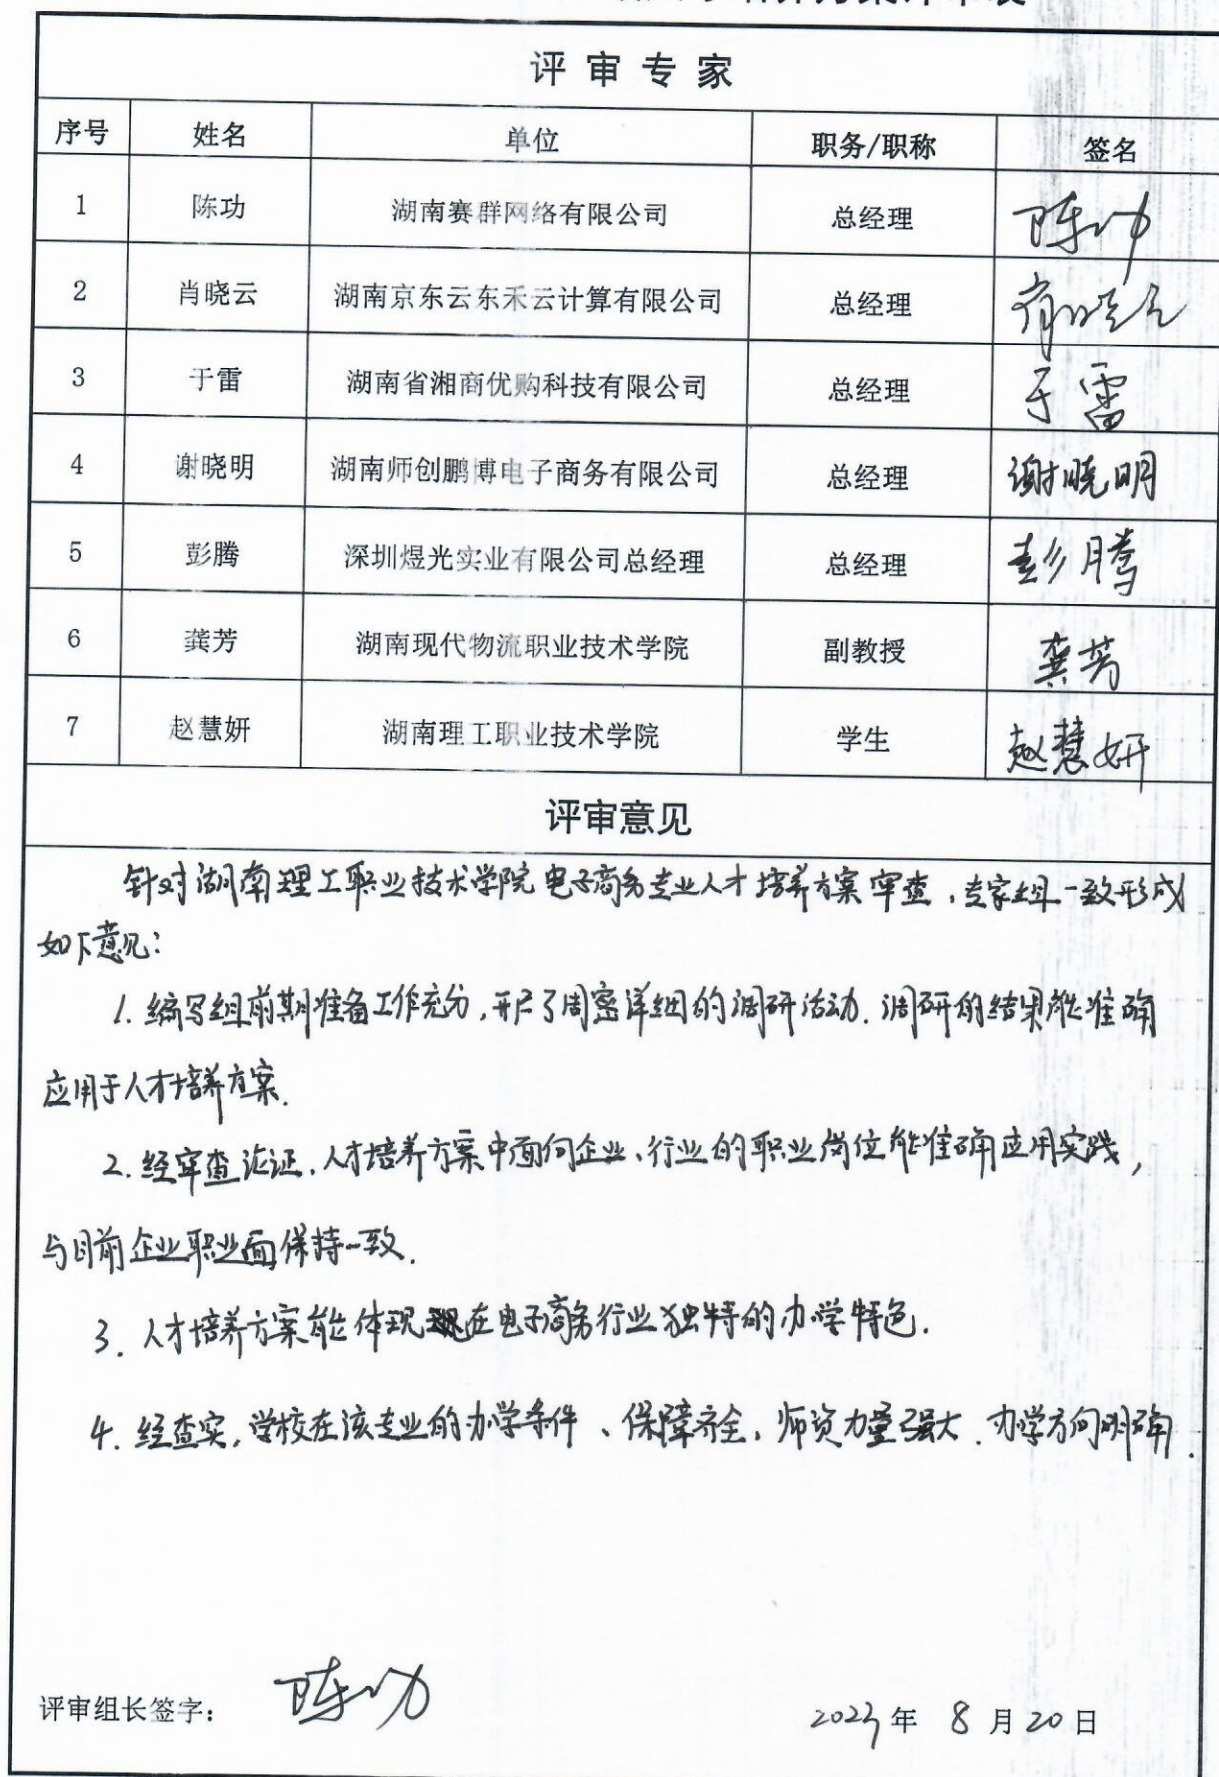 评审专家
序号 姓名 单位 职务/职称 签名
1 陈功 湖南赛群网络有限公司 总经理 陈功
2 肖晓云 湖南京东云东禾云计算有限公司 总经理 肖晓云
3 于雷 湖南省湘商优购科技有限公司 总经理 于雷
4 谢晓明 湖南师创鹏博电子商务有限公司 总经理 谢晓明
5 彭腾 深圳煜光实业有限公司总经理 总经理 彭腾
6 龚芳 湖南现代物流职业技术学院 副教授 龚芳
7 赵慧妍 湖南理工职业技术学院 学生 赵慧妍
评审意见
针对湖南理工职业技术学院电子商务专业人才培养方案审查,专家组一致形成
如下意见:
1. 编写组前期准备工作充分,开展了周密详细的调研活动.调研的结果能准确
应用于人才培养方案.
2. 经审查论证,人才培养方案中面向企业、行业的职业岗位能准确应用实践,
与目前企业职业面保持一致.
3. 人才培养方案能体现在电子商务行业独特的办学特色.
4. 经查实,学校在该专业的办学条件、保障齐全,师资力量强大.办学方向明确.
评审组长签字: 陈功
年 8 月 20 日